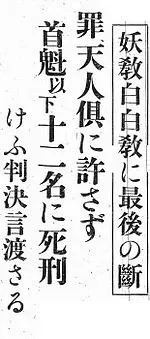 妖敎白白敎に最後の斷
罪天人俱に許さず
首魁以下十二名に死刑
けふ判決言渡さる